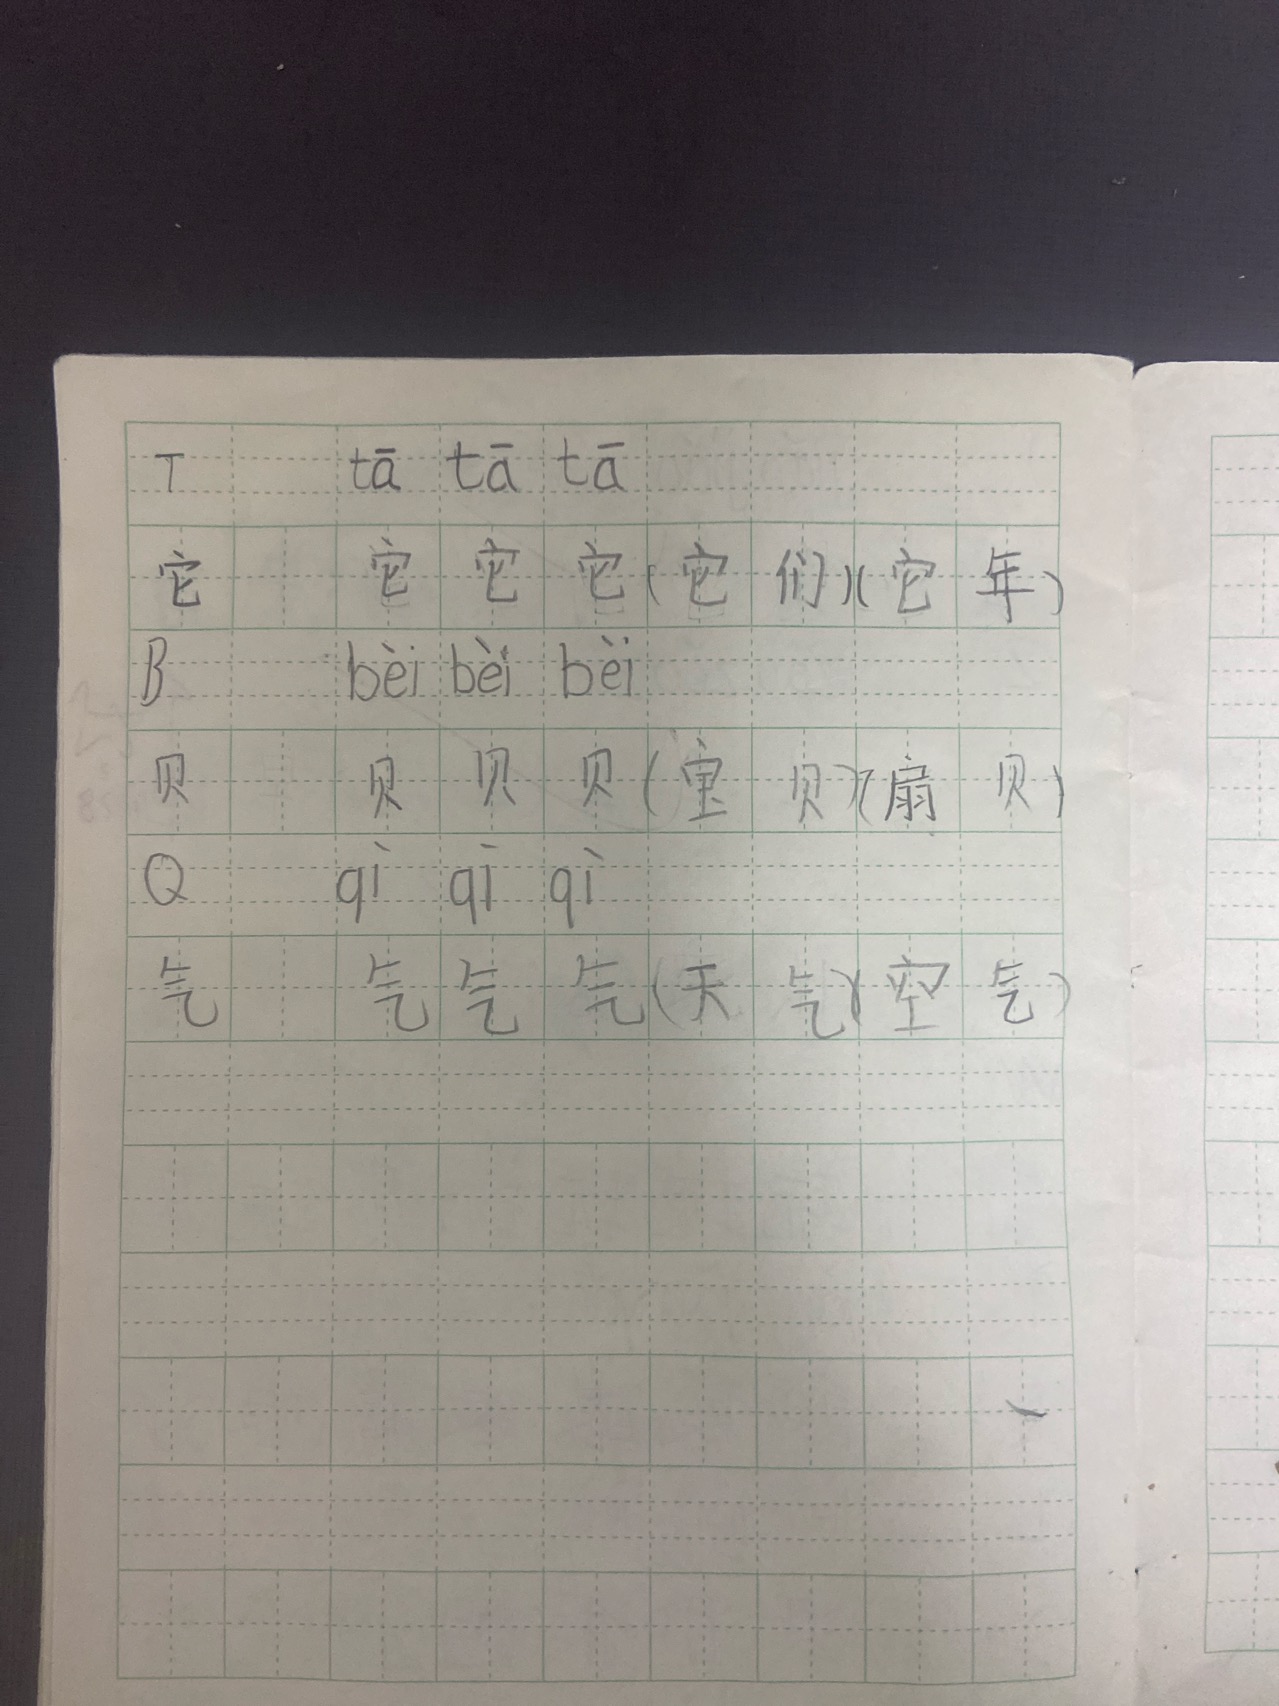 T tā tā tā
它 它 它 它 (它们)(它年)
B bèi bèi bèi
贝 贝 贝 贝 (宝贝)(扇贝)
Q qì qì qì
气 气 气 气 (天气)(空气)